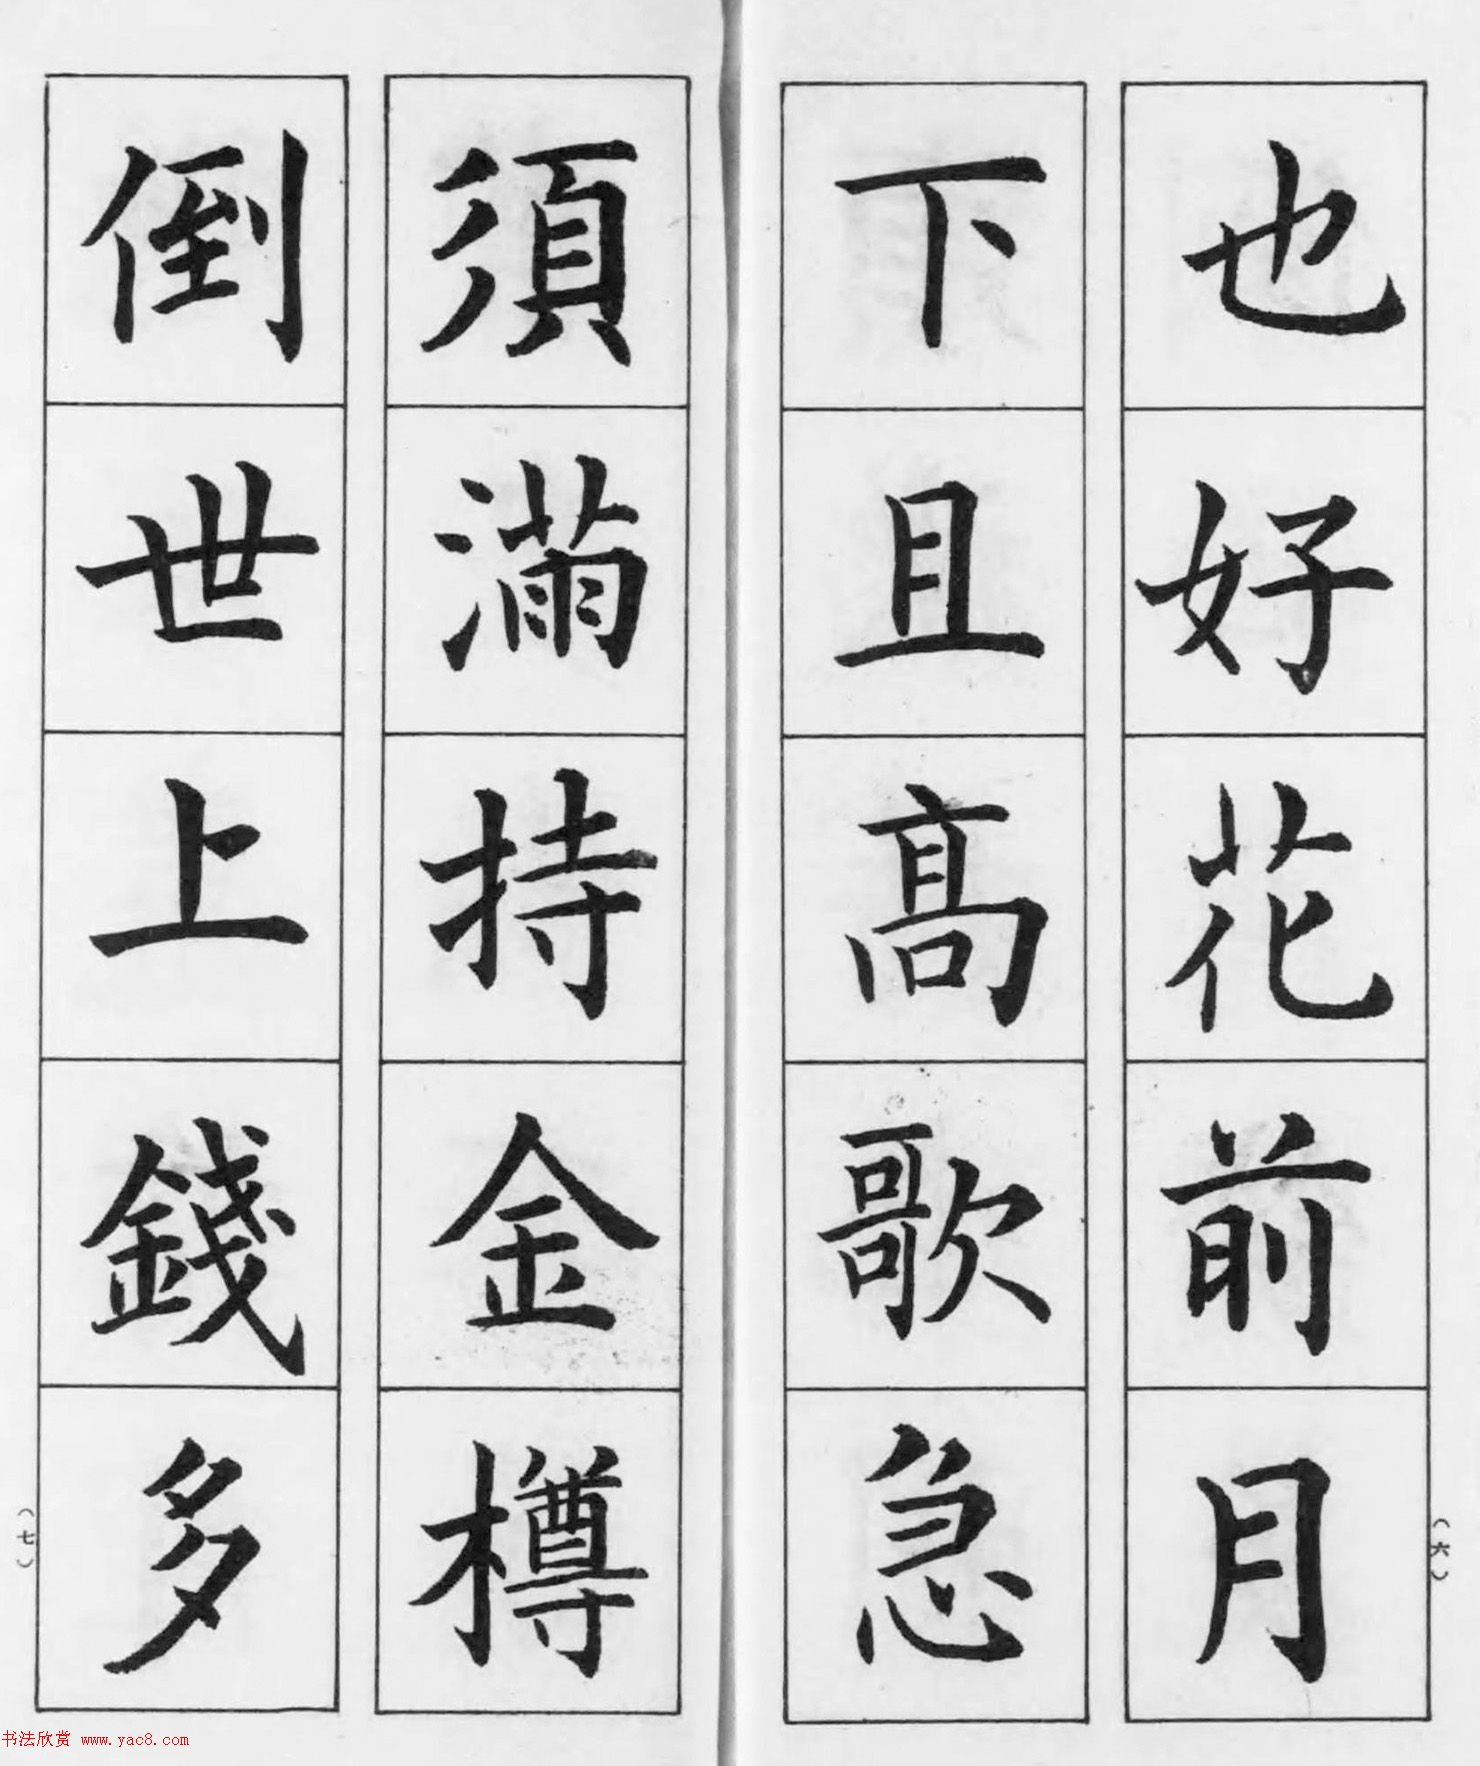 也好花前月
下且高歌急
須滿持金樽
倒世上錢多
(六)
(七)
书法欣赏 www.yac8.com